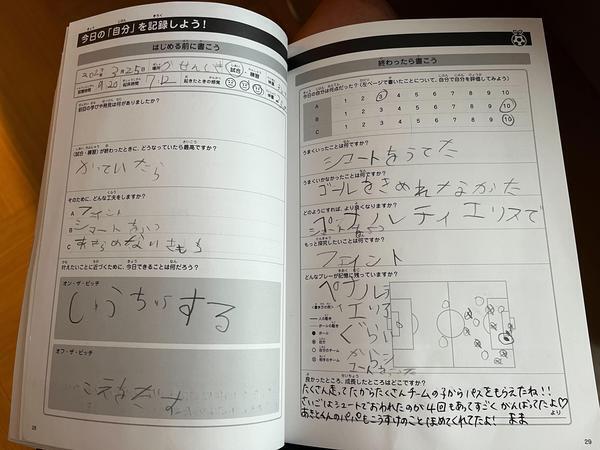 今日の「自分」を記録しよう！
はじめる前に書こう
3月25日
試合・練習
9:20
7:12
起きたときの感覚
前回の学びや発見は何がありましたか？
（試合・練習）が終わったときに、どうなっていたら最高ですか？
かっていたら
そのために、どんな工夫をしますか？
A フェイント
B シュートをうつ
C あきらめないきもち
叶えたいことに近づくために、今日できることは何だろう？
オン・ザ・ピッチ
する
オフ・ザ・ピッチ
こえをだす
28
終わったら書こう
今日の自分は何点だった？（左ページで書いたことについて、自分で自分を評価してみよう）
A 1 2 3 4 5 6 7 8 9 10
B 1 2 3 4 5 6 7 8 9 10
C 1 2 3 4 5 6 7 8 9 10
うまくいったことは何ですか？
シュートをうてた
うまくいかなかったことは何ですか？
ゴールをきめれなかた
どのようにすれば、より良くなりますか？
ペナルティエリアで
シュートをうつ
もっと探究したいことは何ですか？
フェイント
どんなプレーが記憶に残っていますか？
ペナルティ
エリア
ぐらい
から
〈書き方の例〉
人の動き
ボールの動き
ボール
自分
自分のチーム
相手のチーム
良かったところ、成長したところはどこですか？
たくさん走ってたからたくさんチームの子からパスをもらえたね!!
さいごはシュートでおわれたのが4回もあってすごくがんばってたよ♡
あきとくんのパパもこうすけのことほめてくれてたよ! ままより
29